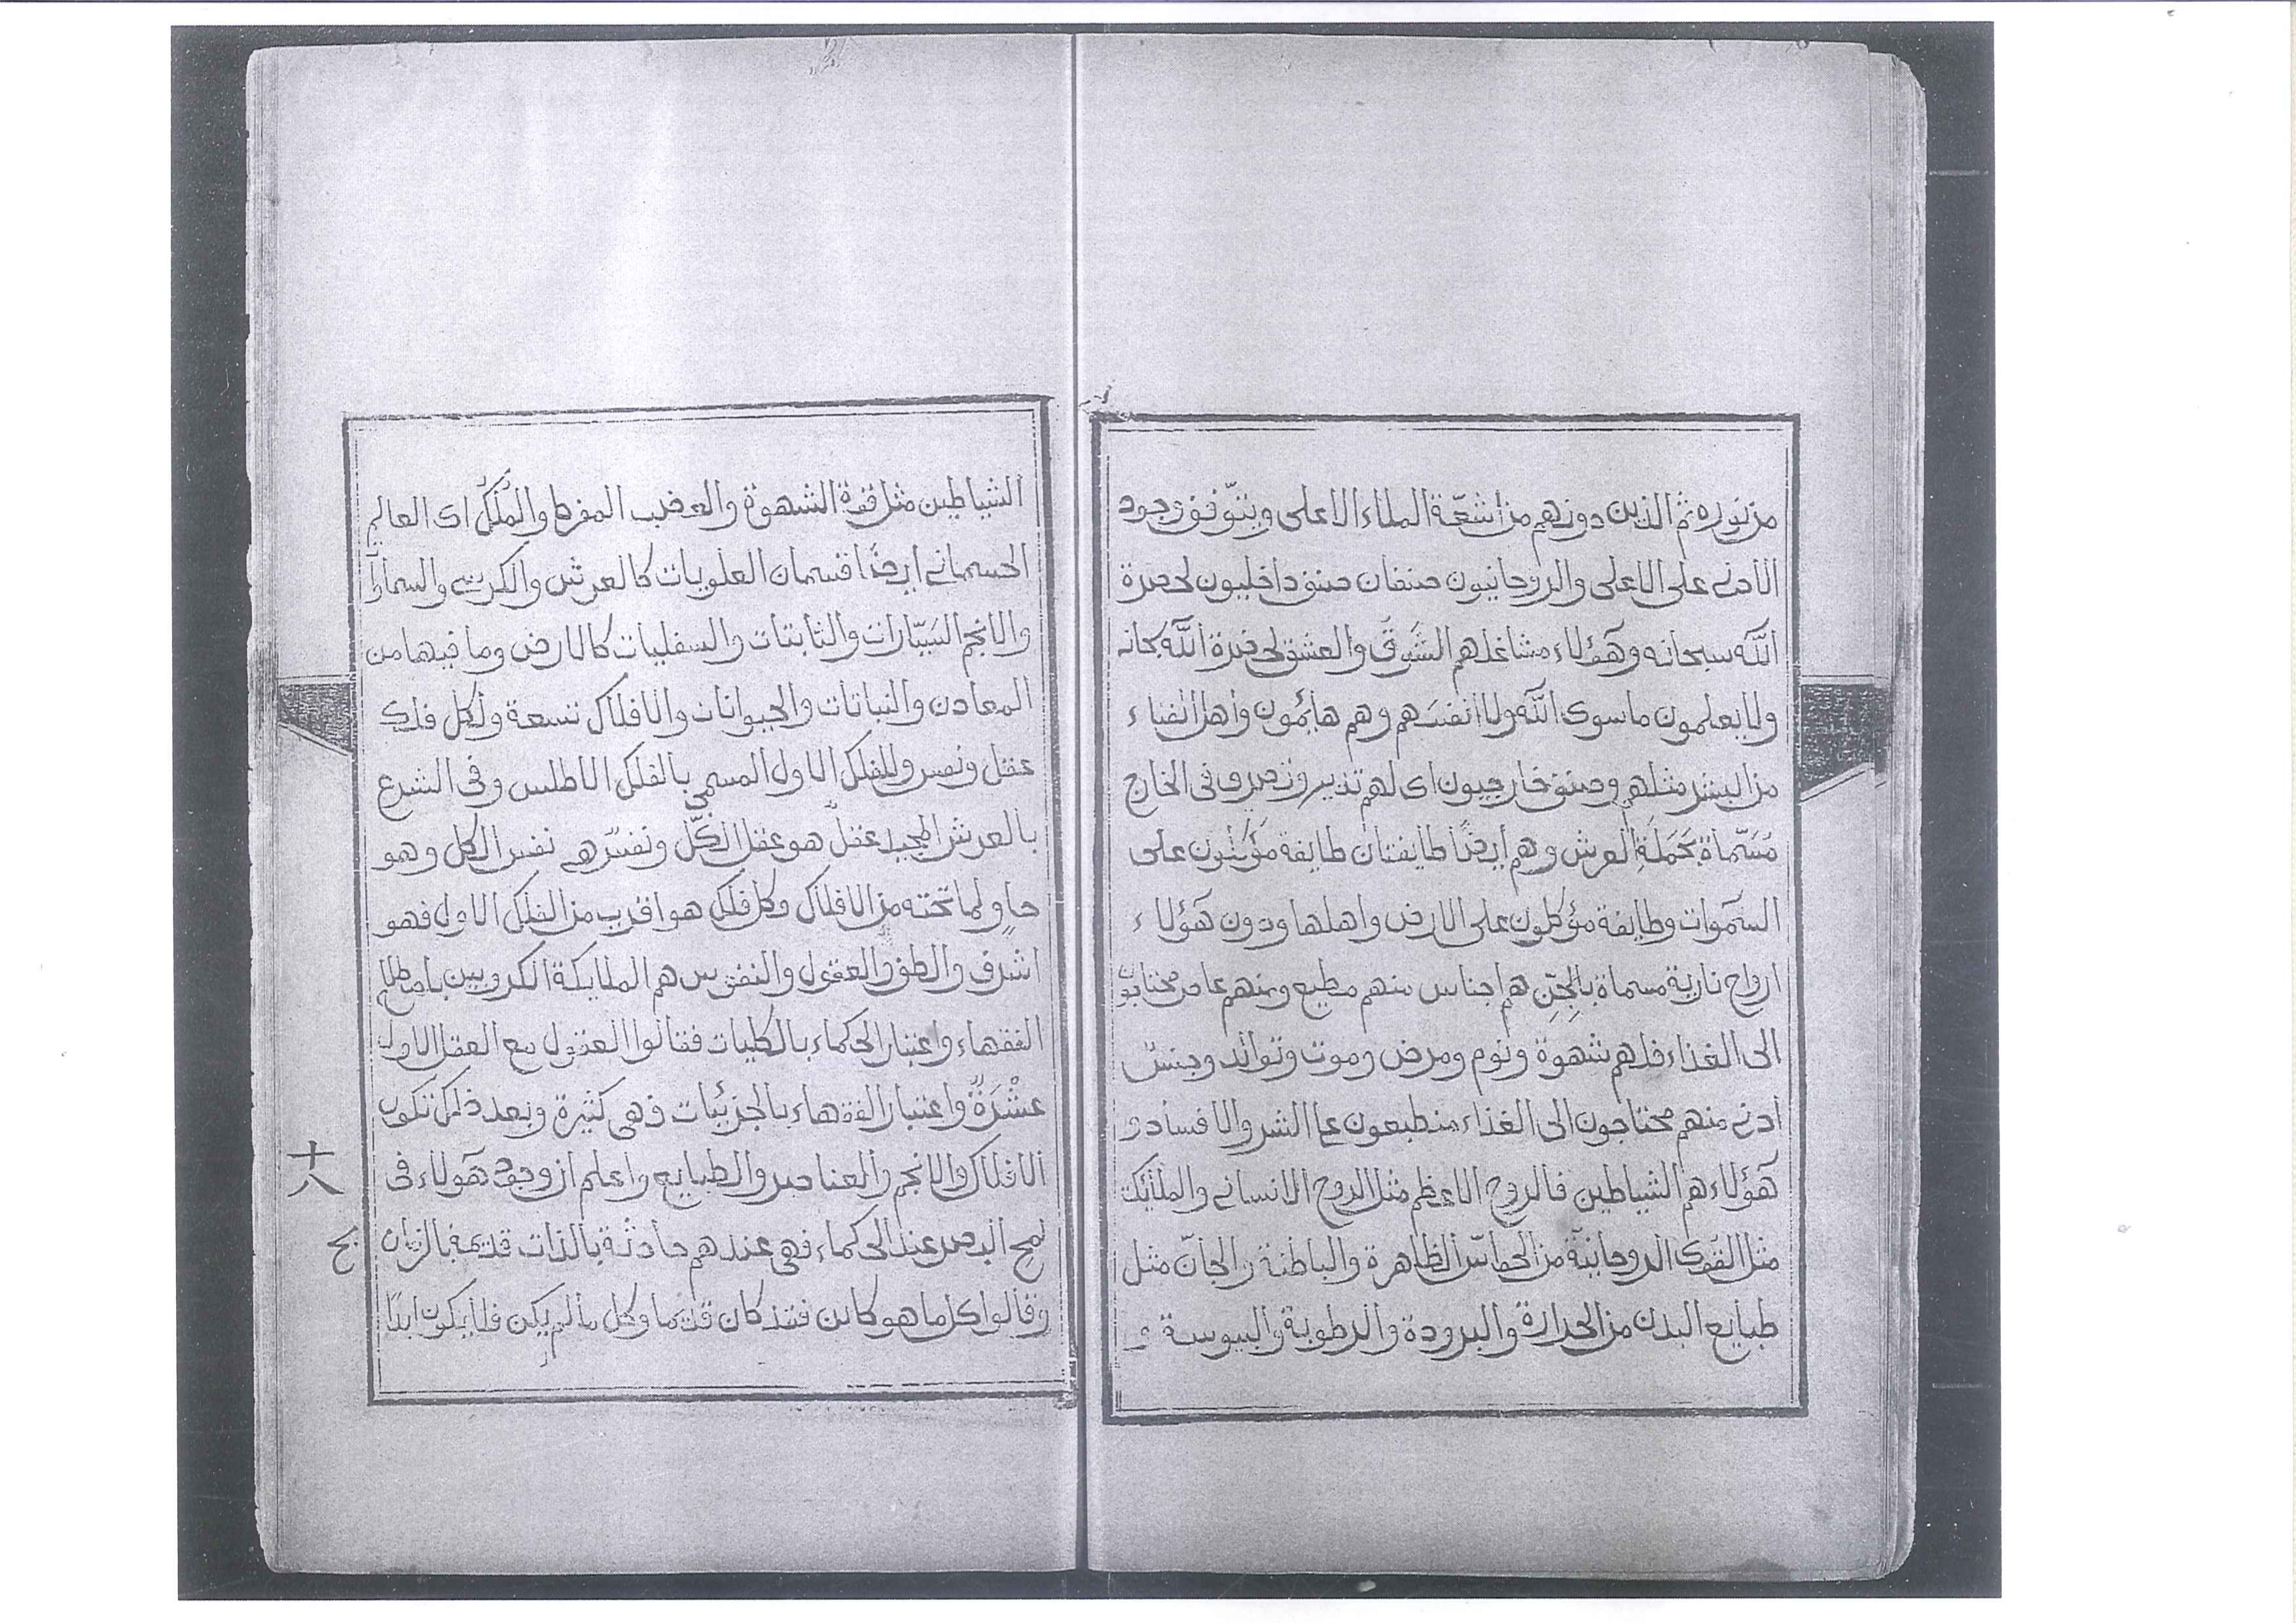 من نوره ثم الذين دونهم من اشعّة الملاء الاعلى ويتوّقف وجود
الادنى على الاعلى والروحانيون صنفان صنف داخليون لحضرة
اللّه سبحانه وهؤلاء مشاغلهم الشَّوقُ والعشق لحضرة اللّه سبحانه
ولا يعلمون ما سوى اللّه ولا انفسَهم وهم هائمون واهل الفناء
من البشر مثلهم وصنف خارجيون اى لهم تدبير وتصرف فى الخارج
مُسَمّاة بحَمَلَةِ العرش وهم ايضًا طايفتان طايفة مؤكلون على
السموات وطايفة مؤكلون على الارض واهلها ودون هؤلاء
ارواح نارية مسماة بالجِنِّ هم اجناس منهم مطيع ومنهم عاص محتاجون
الى الغذاء فلهم شهوة ونوم ومرض وموت وتوالد وجنسٌ
ادنى منهم محتاجون الى الغذاء منطبعون على الشر والافساد و
هؤلاء هم الشياطين فالروح الاعظم مثل الروح الانسانى والملائكة
مثل القوى الروحانيّة من الحواسّ الظاهرة والباطنة والجانّ مثل
طبايع البدن من الحرارة والبرودة والرطوبة واليبوسة و
الشياطين مثل قوة الشهوة والغضب المفرط والمُلكُ اى العالم
الجسمانى ايضًا قسمان العلويات كالعرش والكرسى والسموات
والانجم السَيّارات والثابتات والسفليات كالارض وما فيها من
المعادن والنباتات والحيوانات والافلاك تسعة ولكل فلك
عقل ونفس وللفلك الاول المسمى بالفلك الاطلس وفى الشرع
بالعرش المجيد عقلٌ هو عقل الكلّ ونفسٌ هى نفس الكل وهو
حاوٍ لما تحته من الافلاك وكل فلك هو اقرب من الفلك الاول فهو
اشرف والطف والعقول والنفوس هم الملايكة الكروبيين باصطلاح
الفقهاء واعتبار الحكماء بالكليات فقالوا العقول مع العقل الاول
عشْرَةٌ واعتبار الفقهاء بالجزئيات فهى كثيرة وبعد ذلك تكون
الافلاك والانجم والعناصر والطبايع واعلم ان وجود هؤلاء فى
لمح البصر عند الحكماء فهى عندهم حادثة بالذات قديمة بالزمان
وقالوا كل ما هو كائن فقد كان قديما وكل ما لم يكن فلا يكون ابدًا
十八
يح